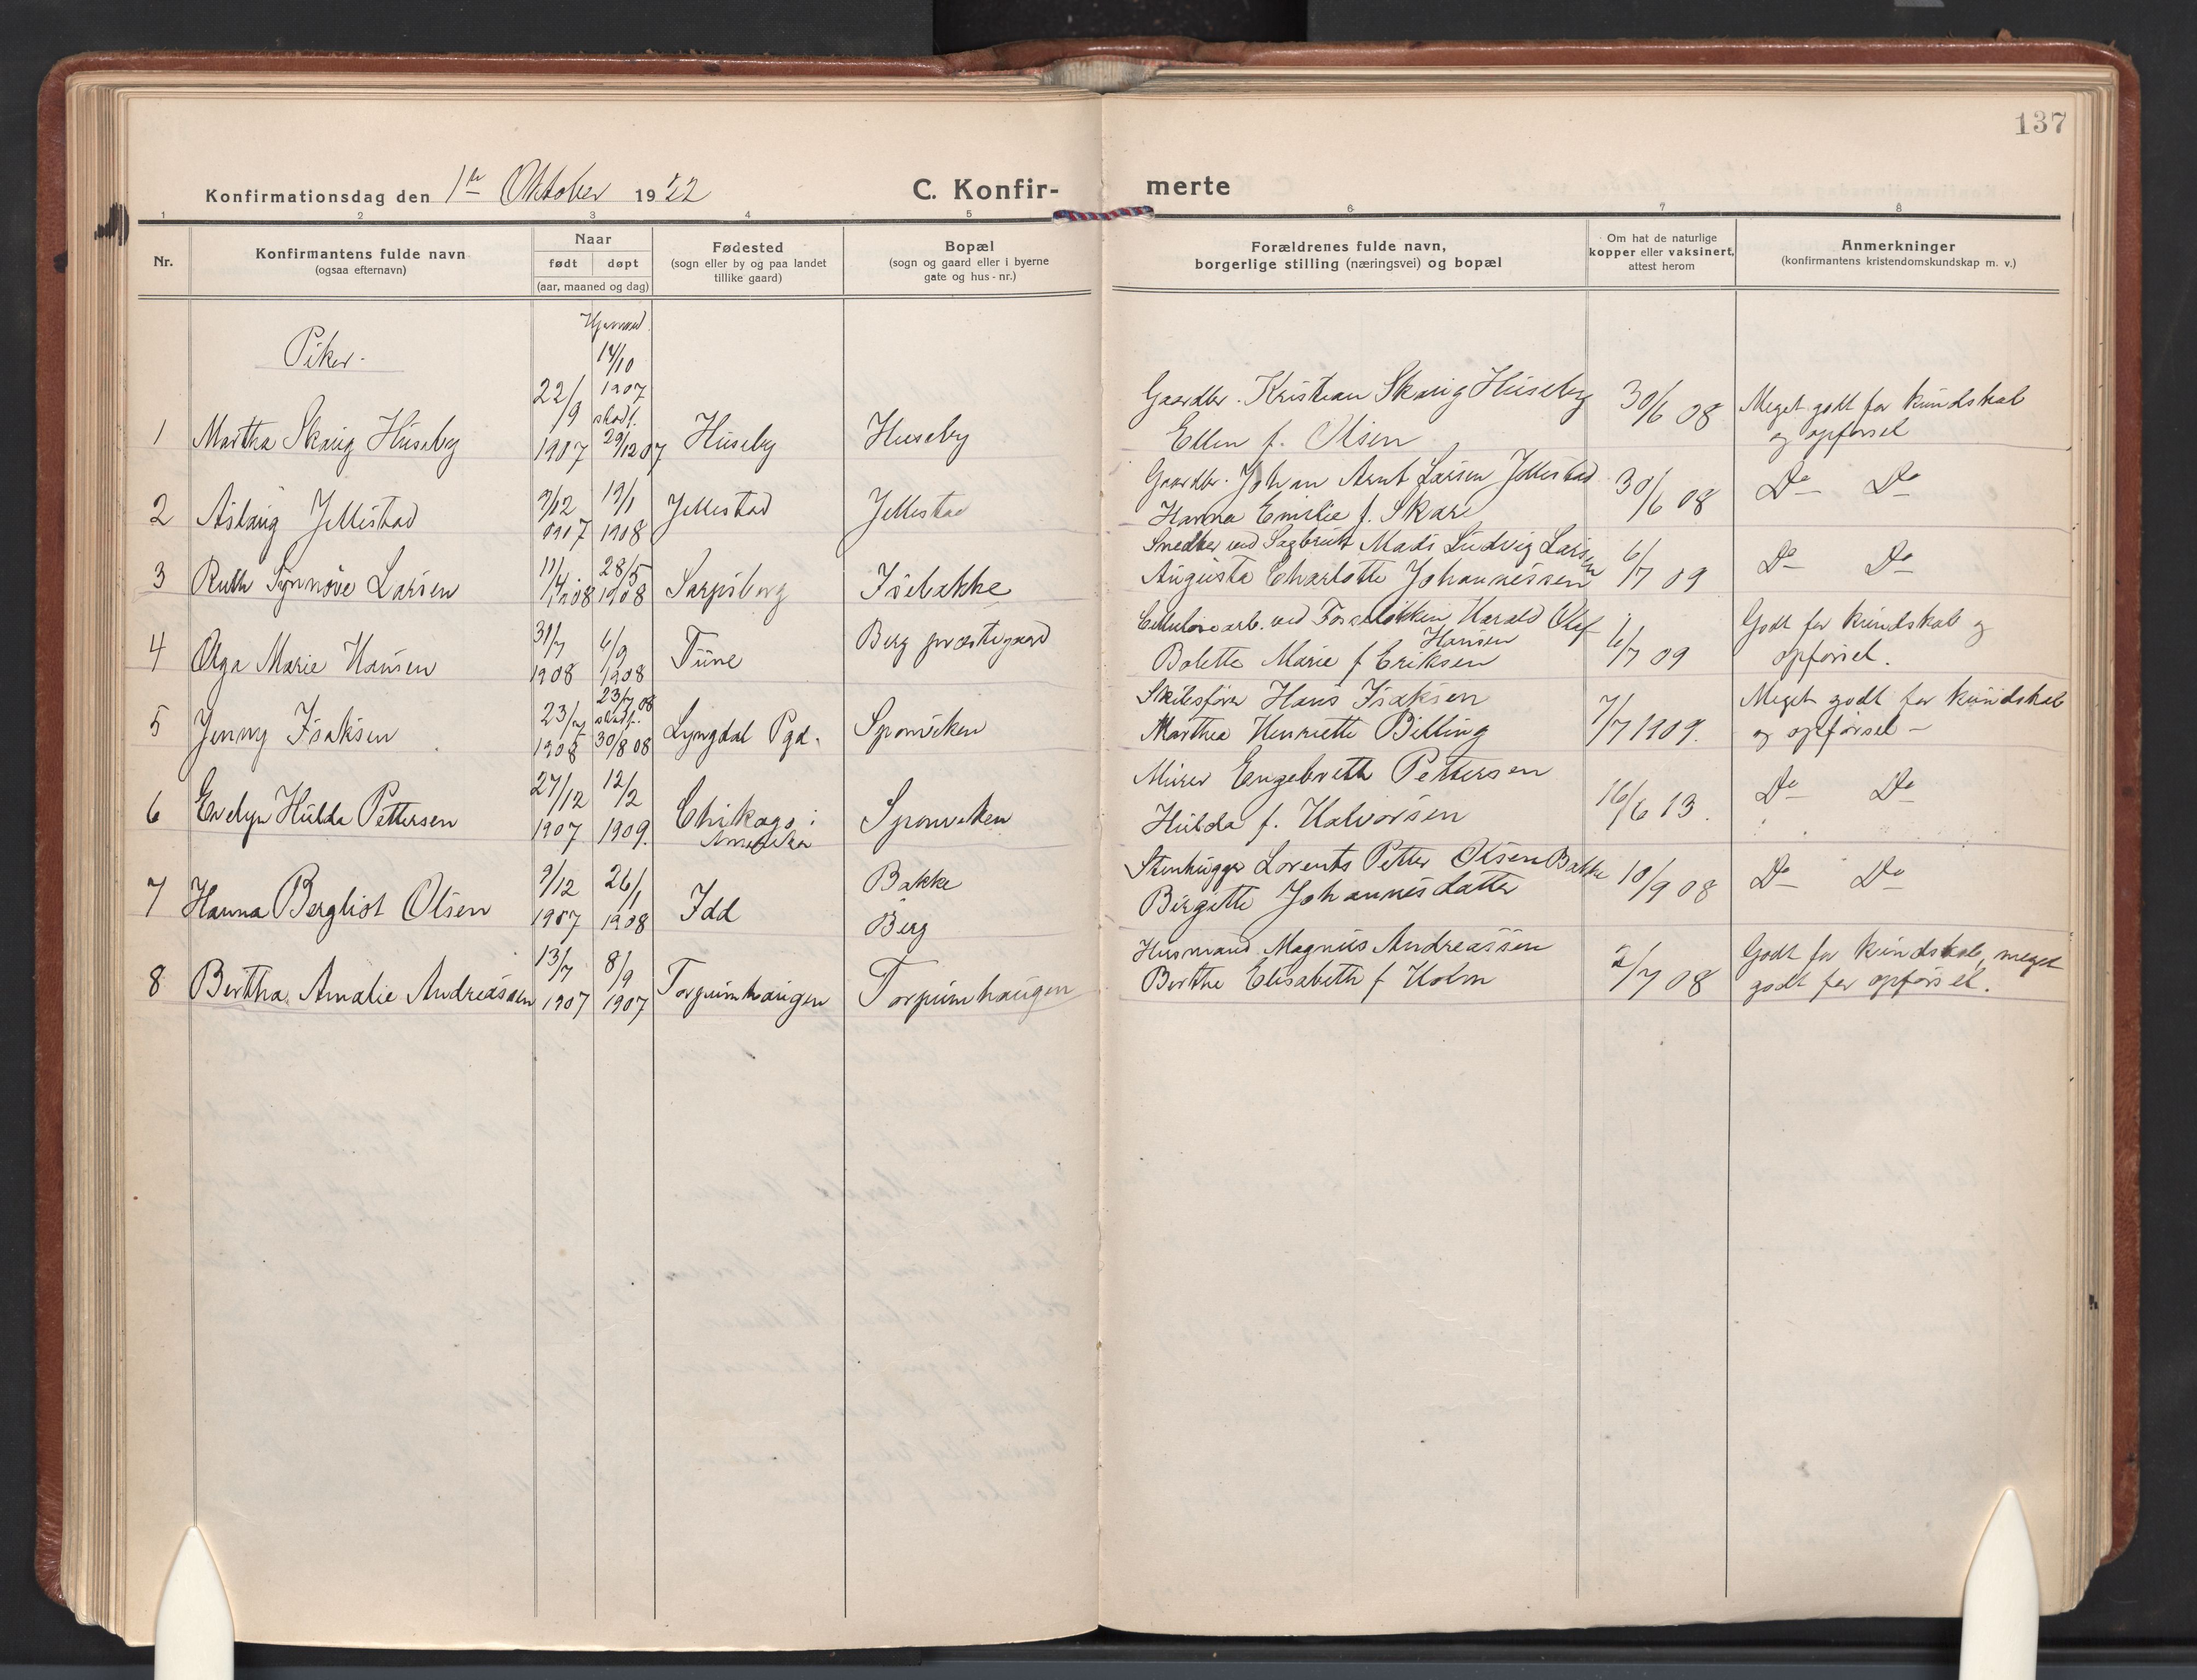 137
Konfirmationsdag den 1ste Oktober 1922
C. Konfir-merte
1 2 3 4 5 6 7 8
Nr.
Konfirmantens fulde navn
(ogsaa efternavn)
Naar
født døpt
(aar, maaned og dag)
Fødested
(sogn eller by og paa landet
tillike gaard)
Bopæl
(sogn og gaard eller i byerne
gate og hus-nr.)
Forældrenes fulde navn,
borgerlige stilling (næringsvei) og bopæl
Om hat de naturlige
kopper eller vaksinert,
attest herom
Anmerkninger
(konfirmantens kristendomskundskap m. v.)
Piker.
1 Martha Skaug Huseby 22/9 1907 Hjemmed. 14/10 1907 stadf. 29/12 07 Huseby Huseby
Gaardbr. Kristian Skaug Huseby
Ellen f. Olsen
30/6 08
Meget godt for kundskab
og opførsel
2 Aslaug Jellestad 9/12 1907 12/1 1908 Jellestad Jellestad
Gaardbr. Johan Arnt Larsen Jellestad
Hanna Emilie f. Skare
30/6 08
Do Do
3 Ruth Synnøve Larsen 11/4 1908 28/5 1908 Sarpsborg Isebakke
Snedker ved Sagbruk Mads Ludvig Larsen
Augusta Charlotte Johannessen
6/7 09
Do Do
4 Olga Marie Hansen 31/7 1908 6/9 1908 Tune Berg præstegaard
Celluloseearb. ved Fosseløkken Harald Olaf
Hansen
Bolette Marie f Eriksen
6/7 09
Godt for kundskab og
opførsel.
5 Jenny Isaksen 23/7 1908 23/7 08 stadf. 30/8 08 Lyngdal Pgd. Sponviken
Skibsfører Hans Isaksen
Marthea Henriette Billing
7/7 1909.
Meget godt for kundskab
og opførsel —
6 Evelyn Hulda Pettersen 27/12 1907 12/2 1909. Chikago i
Amerika Sponviken
Murer Engebreth Pettersen
Hulda f. Halvorsen
16/6 13.
Do Do
7 Hanna Bergliot Olsen 9/12 1907 26/1 1908 Idd Bakke
Berg
Stenhugger Lorents Petter Olsen Bakke
Birgitte Johannesdatter
10/9 08
Do Do
8 Bertha Amalie Andreassen 13/7 1907 8/9 1907 Torpumhaugen Torpumhaugen
Husmand Magnus Andreassen
Berthe Elisabeth f Holm
2/7 08
Godt for kundskab, meget
godt for opførsel.